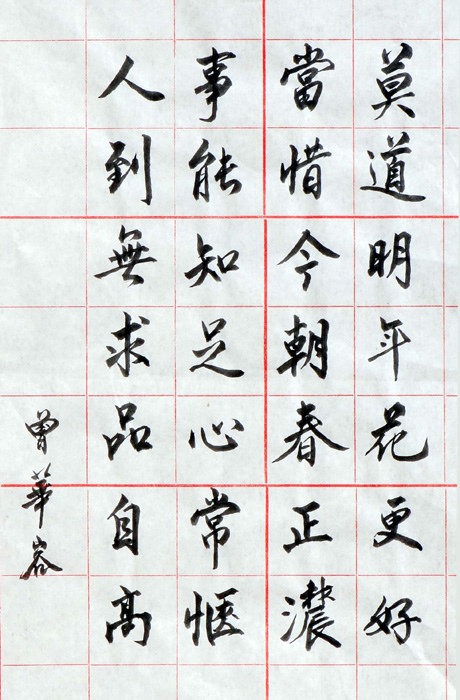 莫道明年花更好
當惜今朝春正濃
事能知足心常愜
人到無求品自高
曾華